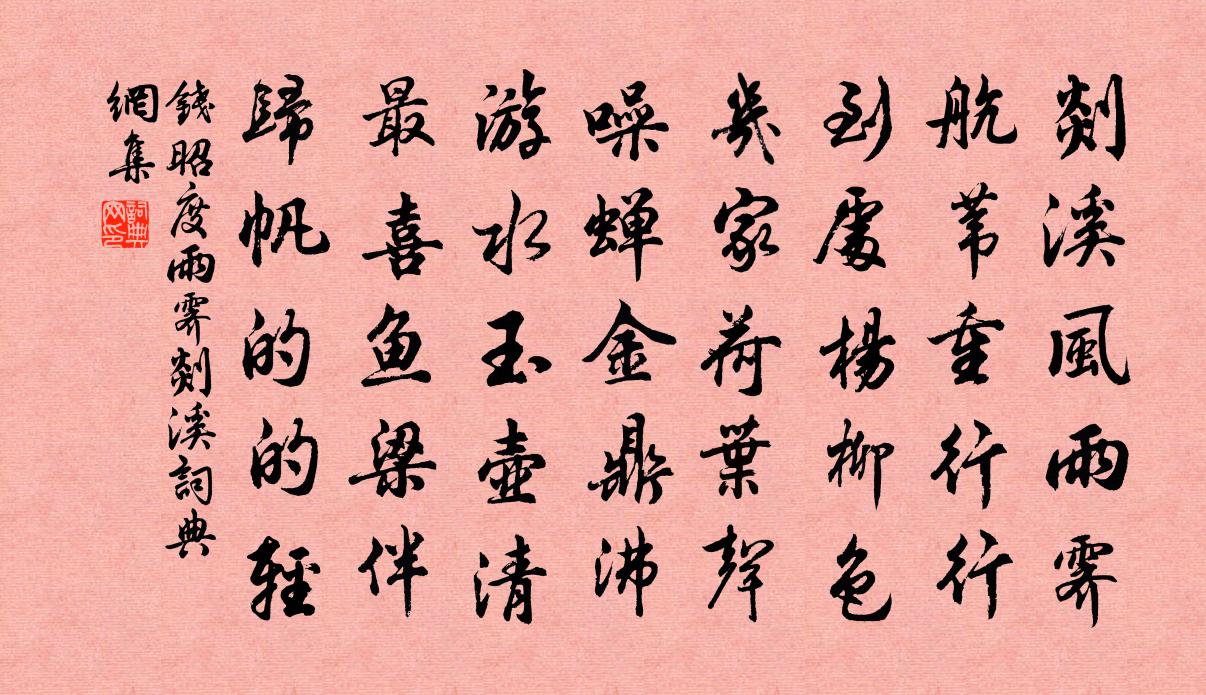 剡溪風雨霽
航苇重行行
到處楊柳色
幾家荷葉聲
噪蟬金鼎沸
游水玉壺清
最喜鱼梁伴
歸帆的的輕
錢昭度雨霽剡溪詞典
網集
詞典網印